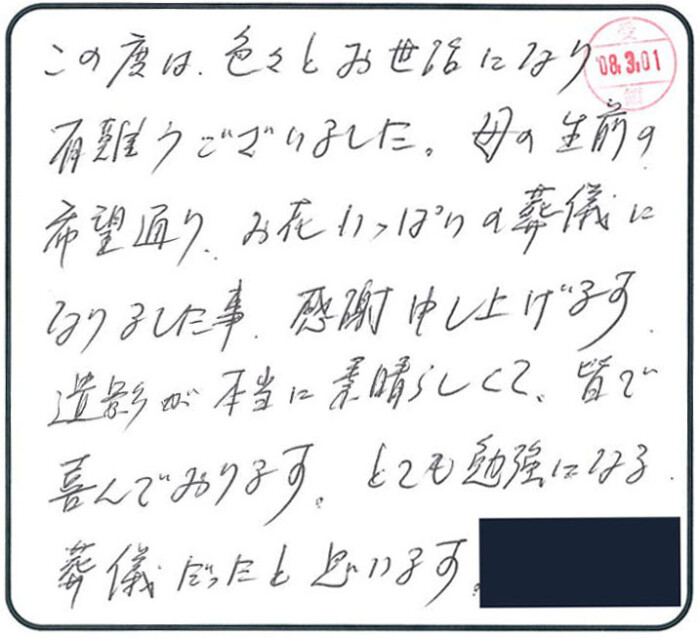 この度は、色々とお世話になり
受
'08.3.01
有難うございました。母の生前の
希望通り、お花いっぱいの葬儀に
なりました事、感謝申し上げます。
遺影が本当に素晴らしくて、皆で
喜んでおります。とても勉強になる
葬儀だったと思います。